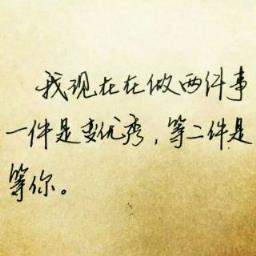 我现在在做两件事
一件是变优秀，等二件是
等你。